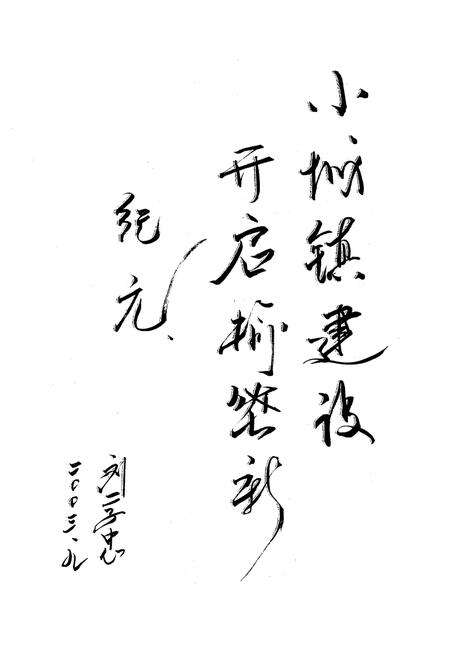 小城镇建设
开启榆垡新
纪元
刘学忠
二〇〇三、九